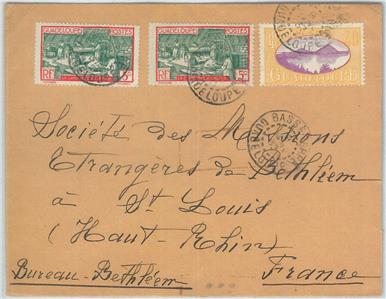 GUADELOUPE POSTES
RF 5c
GUADELOUPE POSTES
RF 5c
GUADELOUPE
GUADELOUPE
BASSE
GUADELOUPE
Société des Missions
Etrangères de Bethléem
à St Louis
(Haut-Rhin)
Bureau-Bethléem France